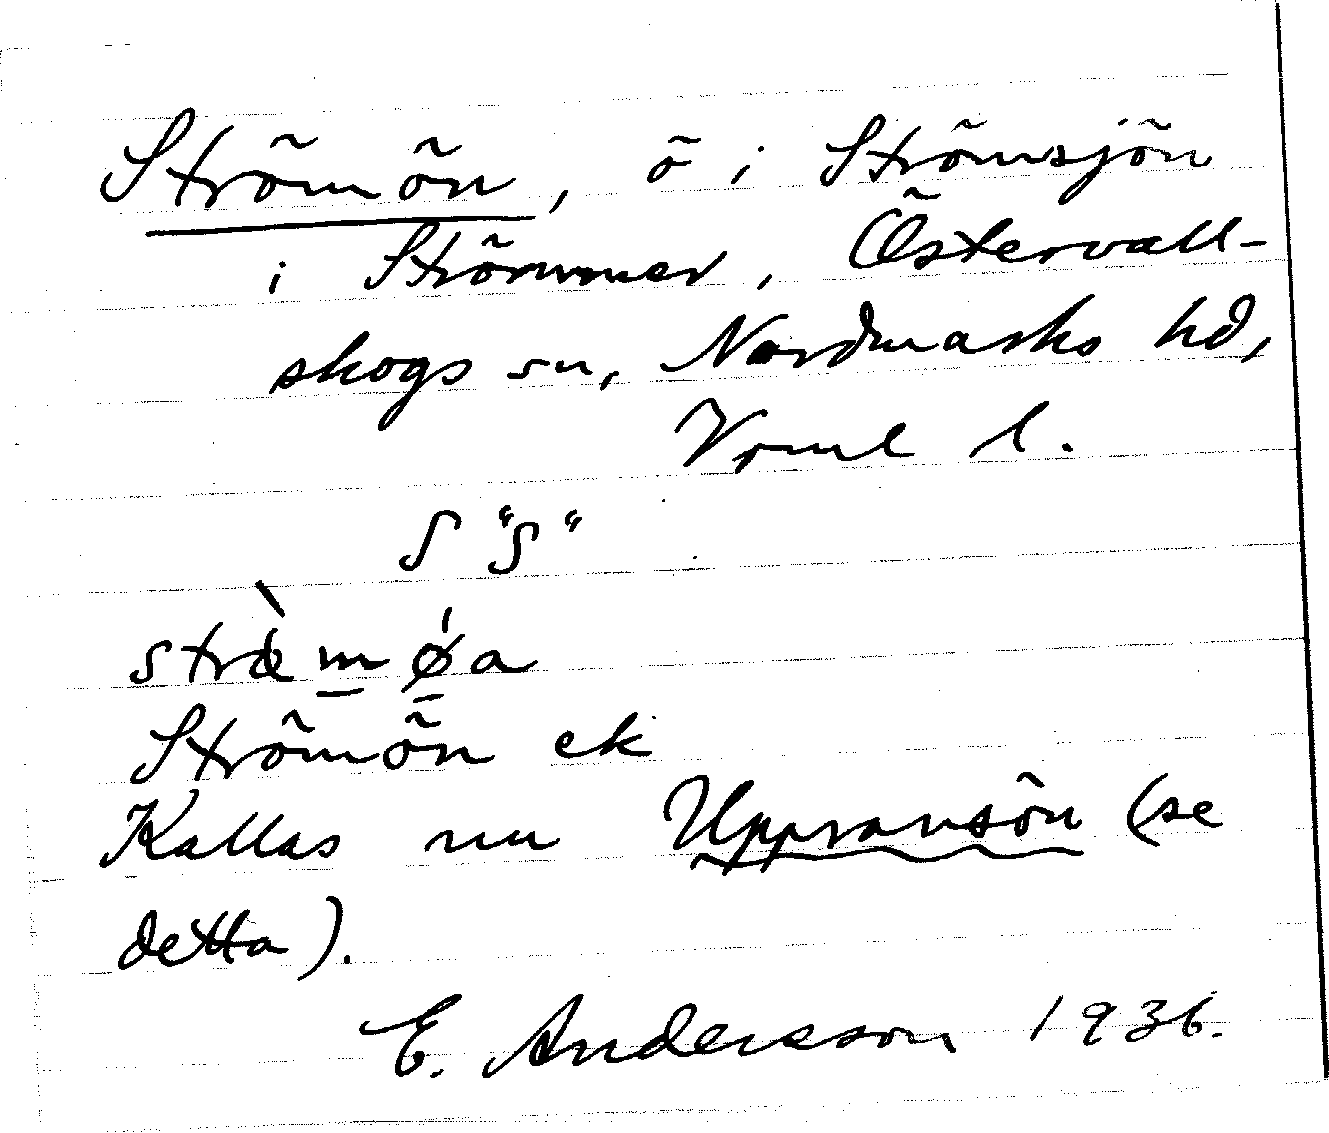 Strömön, ö i Strömsjön
i Strömmer, Östervall-
skogs sn, Nordmarks hd,
Vrml l.
Strömön ek
Kallas nu Uppransön (se
detta).
E. Andersson 1936.